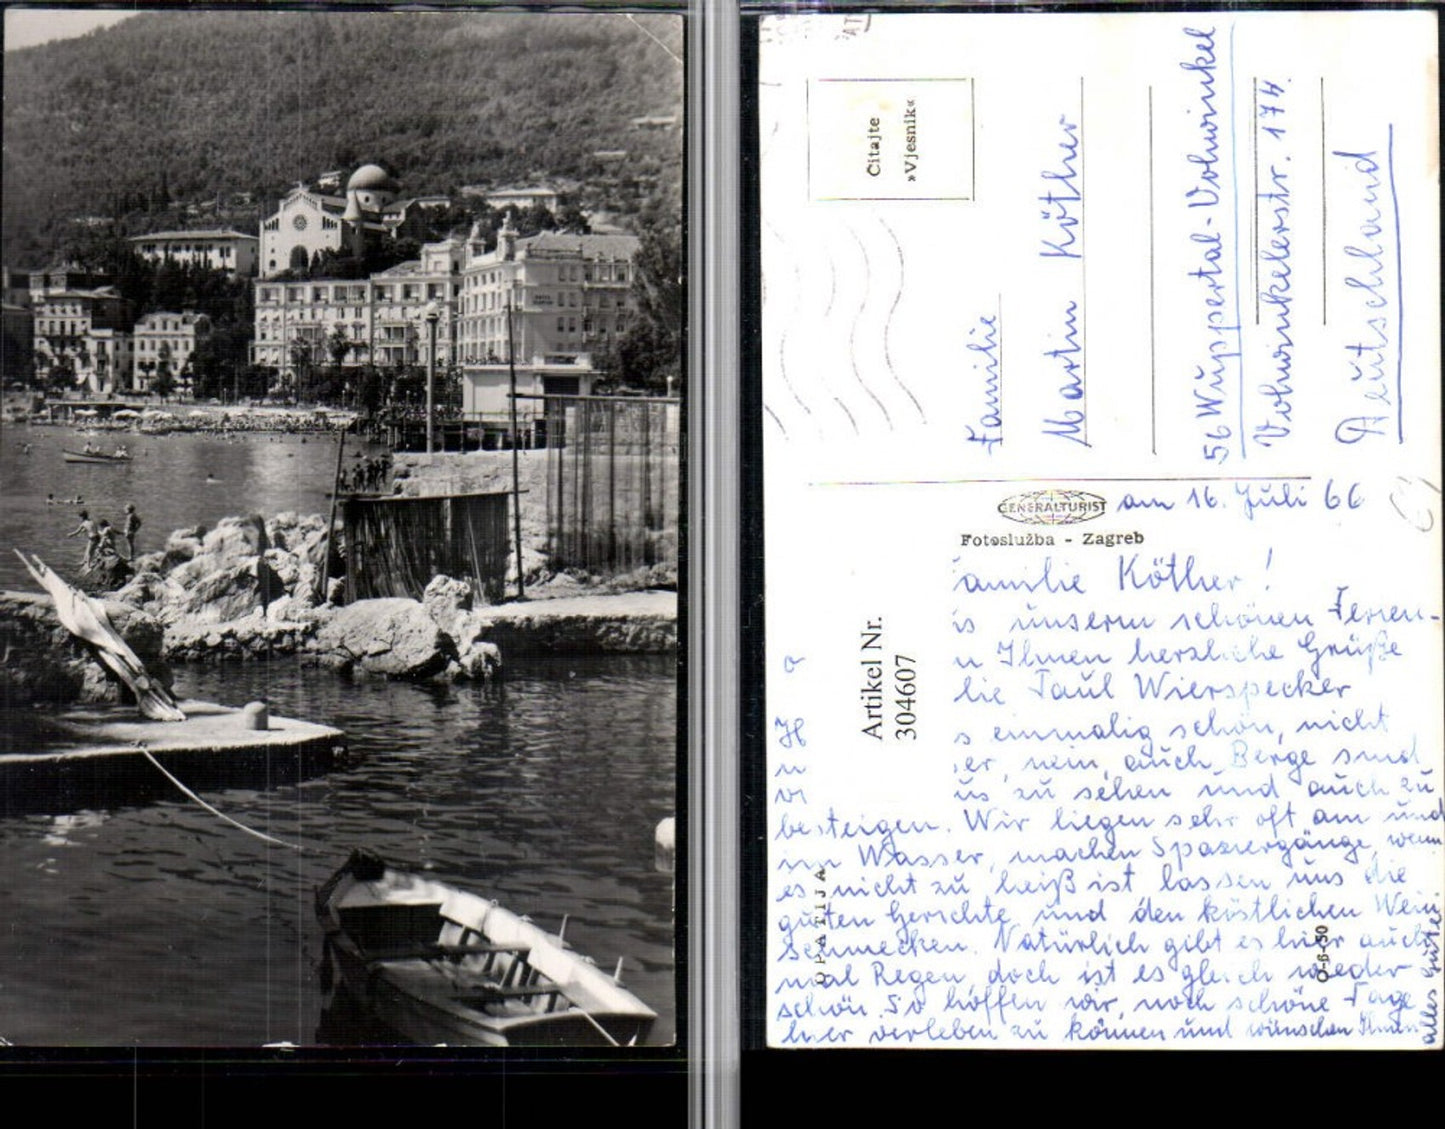 Čitajte
»Vjesnik«
Familie
Martin Köther
56 Wuppertal-Vohwinkel
Vohwinkelerstr. 174
Deutschland
GENERALTURIST
Fotoslužba - Zagreb
am 16. Juli 66
amilie Köther!
s unserm schönen Ferien-
n Ihnen herzliche Grüße
lie Paul Wierspecker
Artikel Nr.
304607
s einmalig schön, nicht
er, nein, auch Berge sind
us zu sehen und auch zu
besteigen. Wir liegen sehr oft am und
im Wasser, machen Spaziergänge, wenn
es nicht zu heiß ist lassen uns die
guten Gerichte und den köstlichen Wein
schmecken. Natürlich gibt es hier auch
mal Regen, doch ist es gleich wieder
schön. So hoffen wir, noch schöne Tage
hier verleben zu können und wünschen Ihnen
alles Gute
OPATIJA
O-6-50